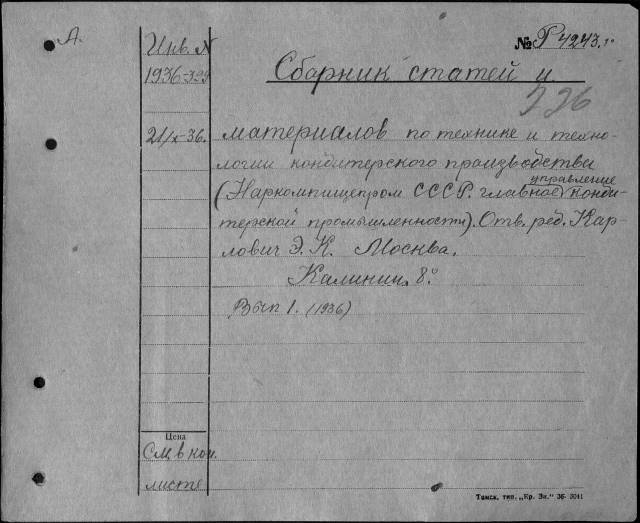 А.
Инв. №
1936-399
№ Р 4243.1º
Сборник статей и
326
21/X-36. материалов по технике и техно-
логии кондитерского производства
управление
(Наркомпищепром СССР. главное конди-
терской промышленности). Отв. ред. Кар-
лович Э. К. Москва.
Калинин. 8º
Вып 1. (1936)
Цена
См. в кон.
листе
Томск, тип. „Кр. Зн.“ 36- 3041